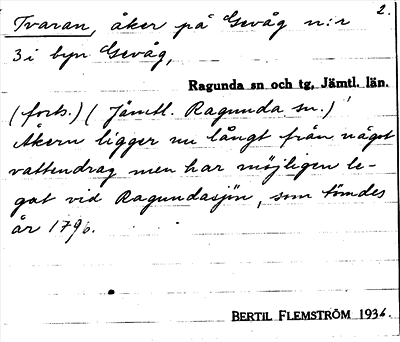 2.
Tvaran, åker på Gevåg n:r
3 i byn Gevåg,
Ragunda sn och tg, Jämtl. län.
(forts.) (Jämtl. Ragunda sn.)
Åkern ligger nu långt från något
vattendrag men har möjligen le-
gat vid Ragundasjön, som tömdes
år 1796.
BERTIL FLEMSTRÖM 1936.